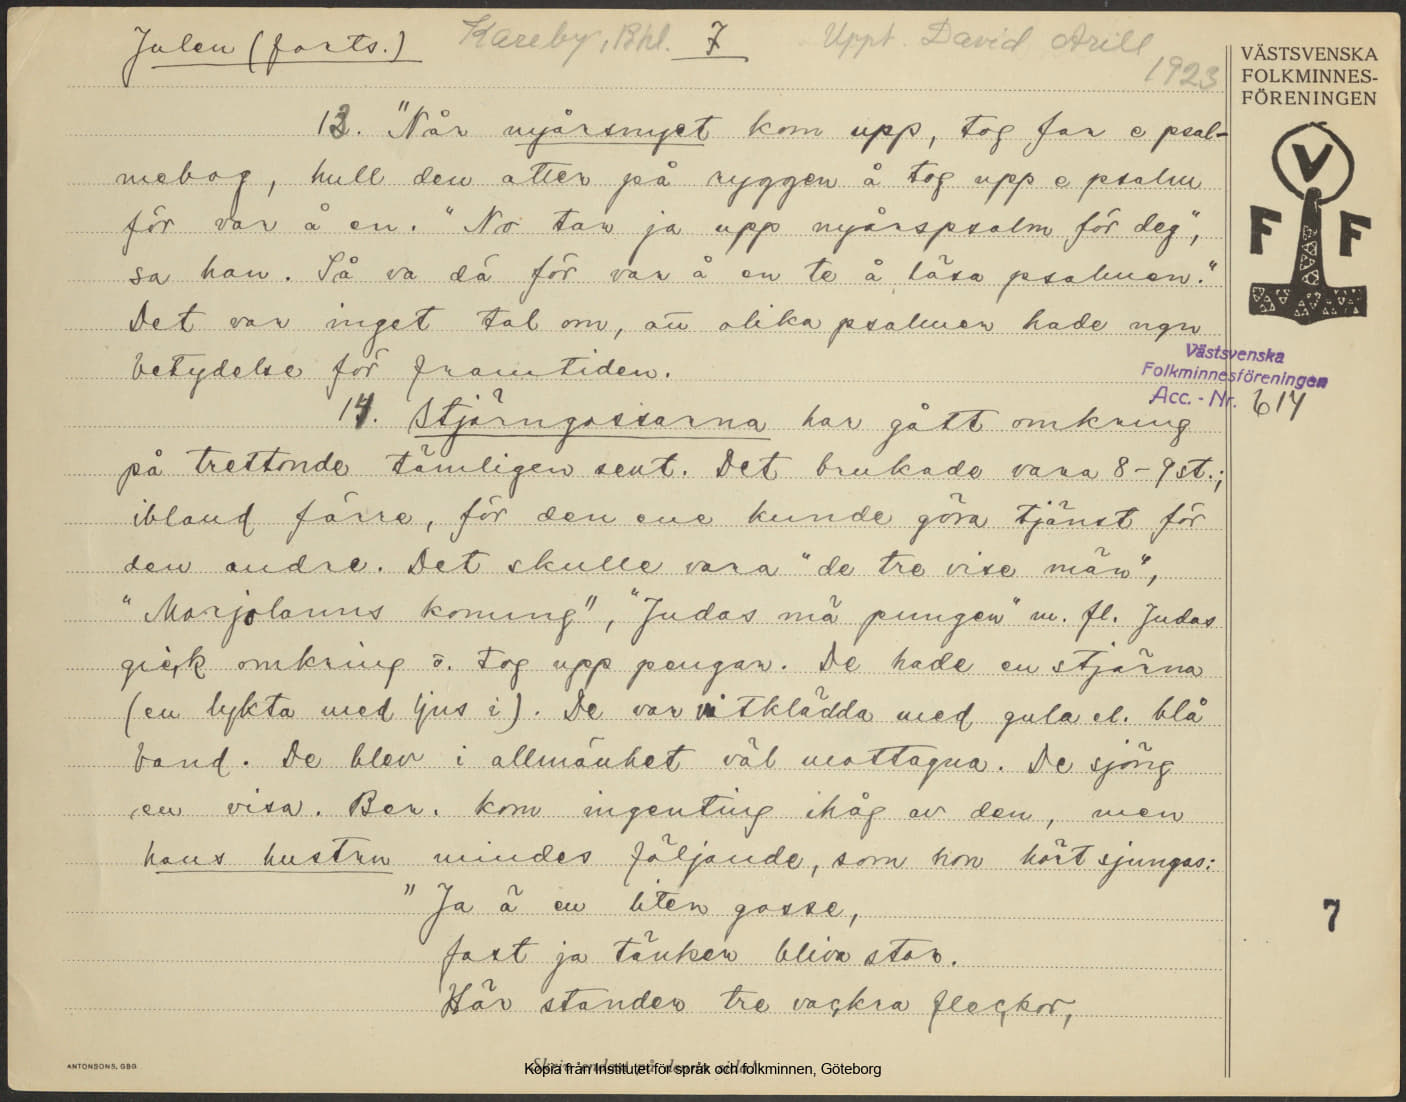 Julen (forts.) Kareby, Bhl. 7 Uppt. David Arill
1923
VÄSTSVENSKA
FOLKMINNES-
FÖRENINGEN
V
F F
13. "Når nyårsnyet kom upp, tog far e psal-
mebog, hull den atter på ryggen å tog upp e psalm
för var å en. "No tar ja upp nyårspsalm för deg",
sa han. Så va dä för var å en te å läsa psalmen."
Det var inget tal om, att olika psalmer hade ngn
betydelse för framtiden.
Västsvenska
Folkminnesföreningen
Acc. - Nr. 614
14. Stjärngossarna har gått omkring
på trettonde tämligen sent. Det brukade vara 8-9 st.;
ibland färre, för den ene kunde göra tjänst för
den andre. Det skulle vara "de tre vise män",
"Marjolanns konung", "Judas mä pungen" m. fl. Judas
gick omkring o. tog upp pengar. De hade en stjärna
(en lykta med ljus i). De var vitklädda med gula el. blå
band. De blev i allmänhet väl mottagna. De sjöng
en visa. Ber. kom ingenting ihåg av den, men
hans hustru mindes följande, som hon hört sjungas:
"Ja ä en liten gosse,
fast ja tänker bliva stor.
Här stander tre vackra fleckor,
7
ANTONSONS, GBG
Kopia från Institutet för språk och folkminnen, Göteborg